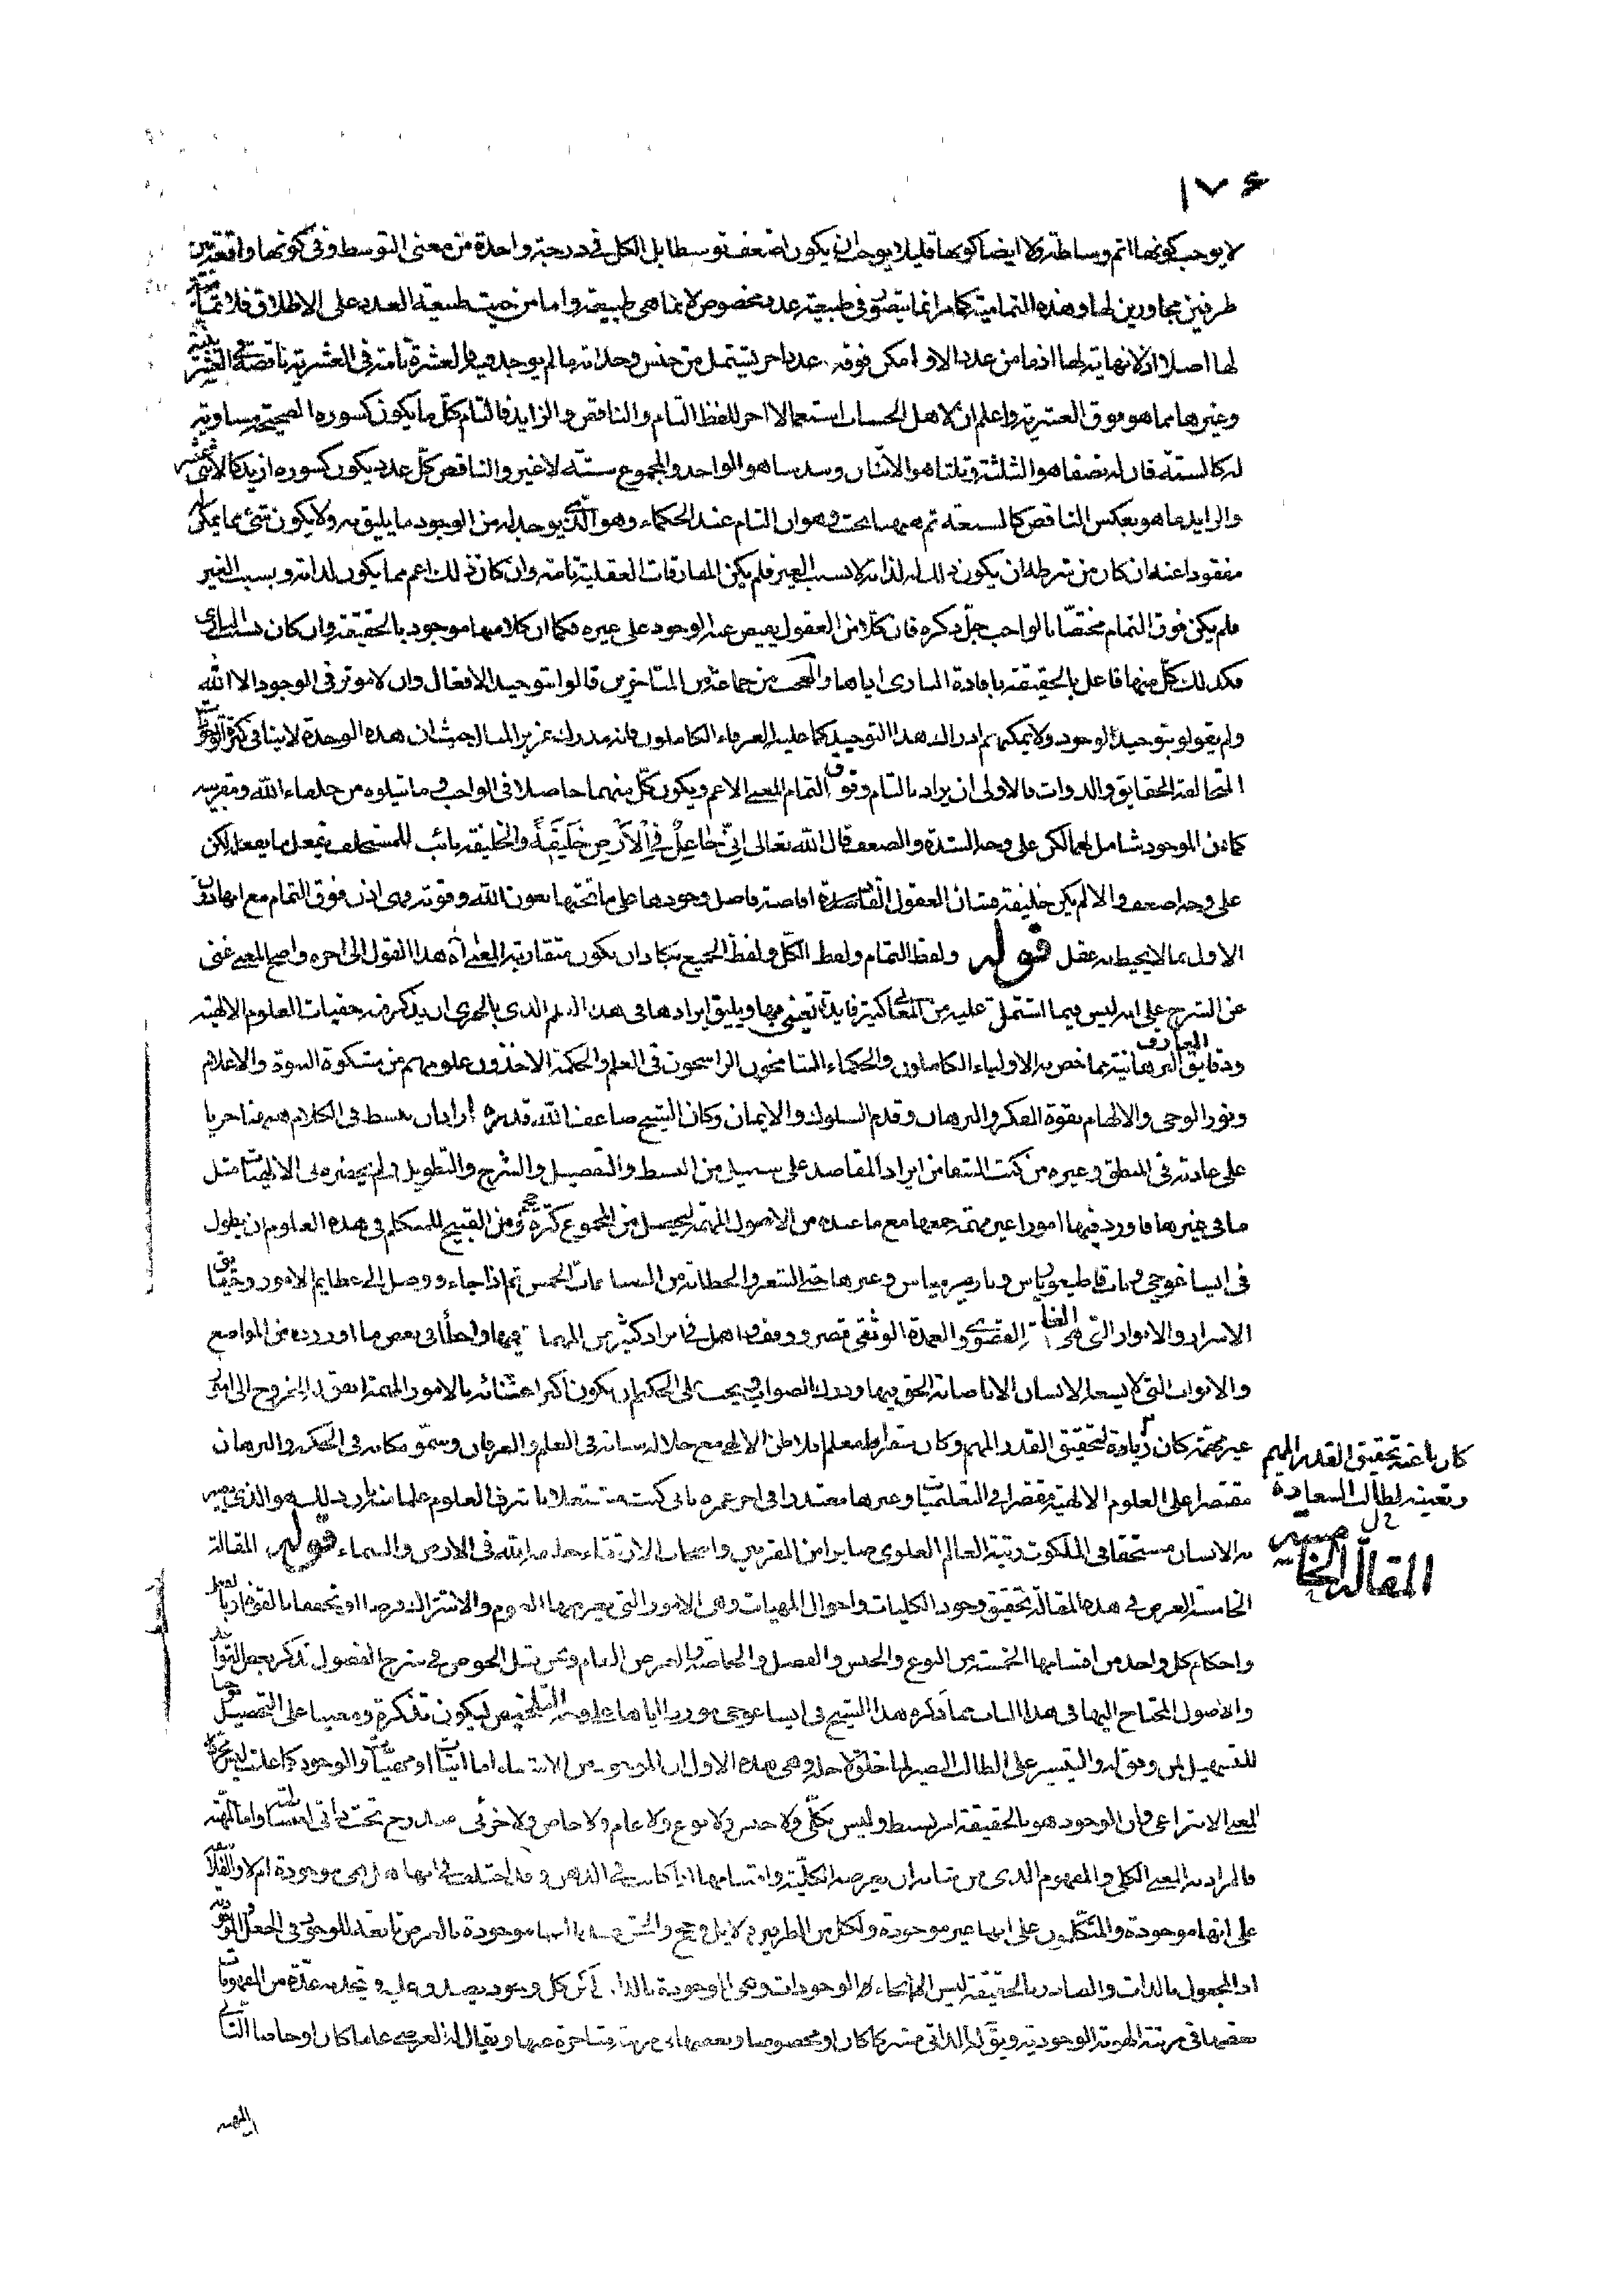 ١٧٦
لا يوجب كونها اتم وساطة ولا ايضا كونها قليلا يوجب ان يكون اضعف توسطا بل الكل في درجة واحدة من معنى التوسط وفي كونها واقعة بين
طرفين مجاورين لها وهذه التمامية كما مر انما يتصور في طبيعة عدد مخصوص لا بما هي طبيعته واما من حيث طبيعة العدد على الاطلاق فلا تمامية
لها اصلا اذ لا نهاية لها اذ ما من عدد الا و امكن فوقه عدد اخر يشتمل من جنس وحداته ما لم يوجد فيه فالعشرة تامة في العشرية ناقصة في
وغيرها مما هو فوق العشرية واعلم ان لاهل الحساب استعمالا اخر للفظ التام والناقص والزايد فالتام كل ما يكون كسوره الصحيحة مساوية
له كالستة فان له نصفا هو الثلثة وثلثا هو الاثنان وسدسا هو الواحد والمجموع ستة لا غير والناقص كل عدد يكون كسوره ازيد كالاثنى عشر
والزايد ما هو بعكس الناقص كالسبعة ثم ههنا بحث وهو ان التام عند الحكماء وهو الذي يوجد له من الوجود ما يليق به ولا يكون شئ مما يمكن له
مفقودا عنه ان كان من شرطه ان يكون ذلك له لذاته لا بسبب الغير فلم يكن المفارقات العقلية تامة وان كان ذلك اعم مما يكون لذاته وبسبب الغير
فلم يكن فوق التمام مختصا بالواجب جل ذكره فان كلا من العقول يفيض عنه الوجود على غيره فكما ان كلا منها موجود بالحقيقة وان كان بسبب البارى
فكذلك كل منها فاعل بالحقيقة بافادة البارى اياها والعجب من جماعة من المتاخرين قالوا بتوحيد الافعال وان لا موثر في الوجود الا الله
ولم يقولوا بتوحيد الوجود ولا يمكنهم ادراك هذا التوحيد كما عليه العرفاء الكاملون فانه مدرك عزيز المنال بحيث ان هذه الوحدة لا ينافي كثرة الوجودات
المتخالفة الحقايق والذوات فالاولى ان يراد بالتام وفوق التمام المعنى الاعم ويكون كل منهما حاصلا في الواجب وما يتلوه من خلفاء الله ومقربيه
كما ان الموجود شامل لهما لكن على وجه الشدة والضعف قال الله تعالى اِنّي جاعِلٌ فِي الْاَرْضِ خَليفَةً والخليفة نائب للمستخلف يفعل ما يفعل لكن
على وجه اضعف والا لم يكن خليفة فشان العقول القادسة افاضة فاضل وجودها على ما تحتها بعون الله وقوته فهى اذن فوق التمام مع انها دون
الاول بما لا يحيط به عقل قوله ولفظ التمام ولفظ الكل ولفظ الجميع يكاد ان يكون متقاربة المعنى اه هذا القول الى اخره واضح المعنى غنى
عن الشرح على انه ليس فيما اشتمل عليه من المعانى كثير فايدة تعتنى بها ويليق ايرادها في هذا العلم الذى بالحرى ان يذكر فيه خفيات العلوم الالهية
ودقايق المعارف البرهانية مما خص به الاولياء الكاملون والحكماء الشامخون الراسخون في العلم والحكمة الاخذون علومهم من مشكوة النبوة والاعلام
ونور الوحى والالهام بقوة الفكر والبرهان وقدم السلوك والايمان وكان الشيخ ضاعف الله قدره اراد ان يبسط في الكلام ههنا جريا
على عادته في المنطق وغيره من كتب الشفا من ايراد المقاصد على سبيل من البسط والتفصيل والشرح والتطويل ولم يحضره في الالهيات مثل
ما في غيرها فاورد فيها امورا غير مهمة جمعها مع ما عنده من الاصول المهمة ليحصل من المجموع كثرة حجم ومن القبيح للمتكلم في هذه العلوم ان يطول
في ايساغوجى وباب قاطيغورياس وبارير ميناس وغيرها حتى الشعر والخطابة من الصناعات الخمس ثم اذا جاء ووصل الى عظايم الامور وخفايا
الاسرار والانوار التى هى الغاية القصوى والعمدة الوثقى قصر ووقف واهمل في ايراد كثير من المهمات فيها واخطأ في بعض ما اورده من المواضع
والابواب التى لا يسع الانسان الا اصابة الحق فيها ودرك الصواب ويجب على الحكيم ان يكون اكثر اعتنائه بالامور المهمة ويقل الخروج الى امور
غير مهمة كان زيادة لتحقيق القدر المهم وكان سقراط معلم افلاطن الالهى مع جلالة شانه في العلم والعرفان وسمو مكانه في الحكمة والبرهان
مقتصرا على العلوم الالهية مقصرا في التعليميات وغيرها معتذرا في اخر عمره بانى كنت مشتغلا باشرف العلوم علما منه بان ذلك هو الذى يصير
به الانسان مستحقا في الملكوت رتبة العالم العلوى صايرا من المقربين واصحاب الارتقاء خليفة الله في الارض والسماء قوله المقالة
الخامسة الغرض في هذه المقالة تحقيق وجود الكليات واحوال المهيات وهى الامور التى يعرضها العموم والاشتراك
واحكام كل واحد من اقسامها الخمسة من النوع والجنس والفصل والخاصة والعرض العام ونحن قبل الخوض في شرح الفصول نذكر بعض القواعد
والاصول المحتاج اليها في هذا الباب مما ذكره هذا الشيخ في ايساغوجى موردا اياها على وجه التلخيص ليكون تذكرة ومعينا على التحصيل
للتسهيل لمن وفق له والتيسير على الطالب البصير لما خلق لاجله وهى هذه الاول ان الموجود من الاشياء اما انيات او مهيات والوجود كما علمت ليس مجرد
المعنى الانتزاعى فان الوجود هو بالحقيقة امر بسيط وليس بكلى ولا جنس ولا نوع ولا عام ولا خاص ولا جزئى مندرج تحت واما المهية
فالمراد به المعنى الكلى والمفهوم الذى من شانه ان يعرضه الكلية واقسامها اذا كانت في الذهن وقد اختلف في انها هل هى موجودة ام لا والفلاسفة
على انها موجودة والمتكلمون على انها غير موجودة ولكل من الطرفين دلايل وحجج والحق عندنا انها موجودة بالعرض تابعة للوجود في الجعل والوقوع
اذ المجعول بالذات والصادر بالحقيقة ليس الا انحاء الوجودات وهى الموجودة بالذات لكن كل وجود يصدق عليه ويتحد به عدة من المفهومات
بعضها في مرتبة الهوية الوجودية ويقال له الذاتى مشتركا كان او مخصوصا وبعضها في مرتبة متاخرة عنها ويقال له العرضى عاما كان او خاصا الثانى
المهية
كان باعثه تحقيق القدر المهم
وتعينه لطالب السعادة
خ ل
المقالة الخامسة